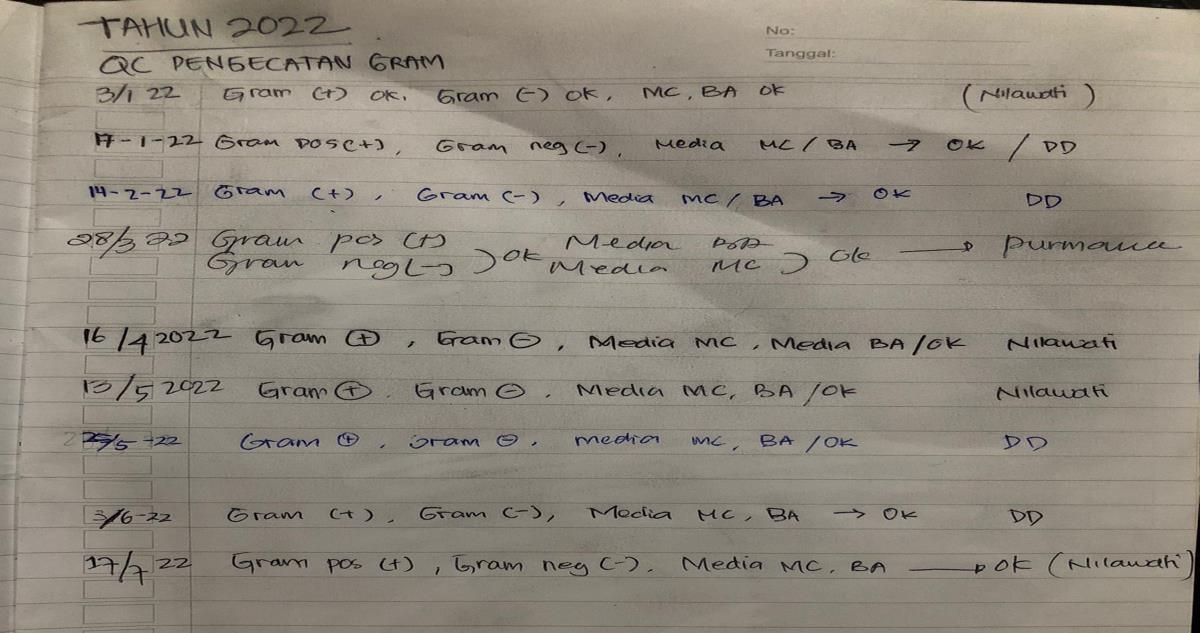 TAHUN 2022
No:
Tanggal:
QC PENGECATAN GRAM
3/1 22 Gram (+) OK, Gram (-) OK, MC, BA OK (Nilawati)
17-1-22 Gram pos (+), Gram neg (-), Media MC / BA → OK / DD
14-2-22 Gram (+), Gram (-), Media MC / BA → OK DD
28/3 22 Gram pos (+) ) OK Media ) Ok → Purmonic
Gram neg (-) Media MC
16/4 2022 Gram (+), Gram (-), Media MC, Media BA/OK Nilawati
13/5 2022 Gram (+), Gram (-), Media MC, BA/OK Nilawati
25/5-22 Gram (+), Gram (-), media MC, BA/OK DD
3/6-22 Gram (+), Gram (-), Media MC, BA → OK DD
17/7 22 Gram pos (+), Gram neg (-). Media MC, BA → OK (Nilawati)